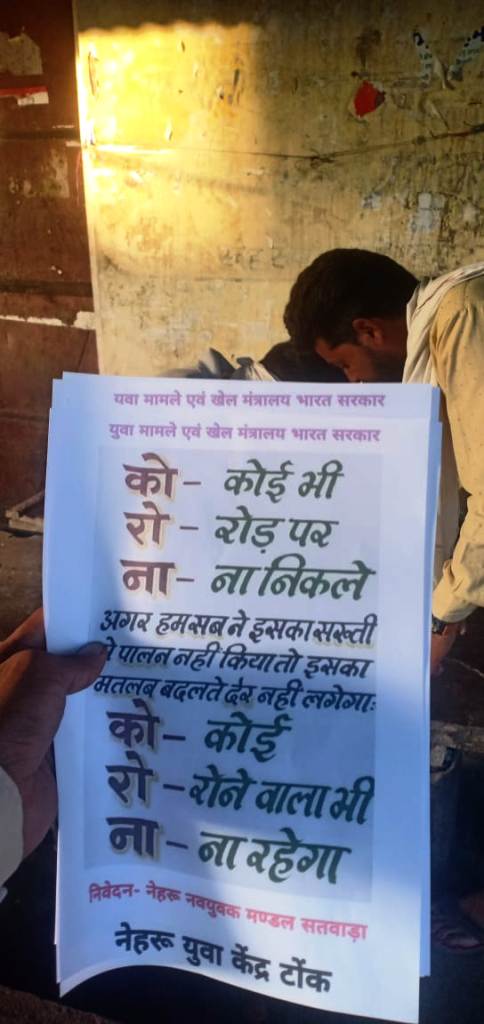 यवा मामले एवं खेल मंत्रालय भारत सरकार
युवा मामले एवं खेल मंत्रालय भारत सरकार
को - कोई भी
रो - रोड़ पर
ना - ना निकले
अगर हम सब ने इसका सख्ती
से पालन नहीं किया तो इसका
मतलब बदलते देर नहीं लगेगाः
को - कोई
रो - रोने वाला भी
ना - ना रहेगा
निवेदन- नेहरू नवयुवक मण्डल सतवाड़ा
नेहरू युवा केंद्र टोंक